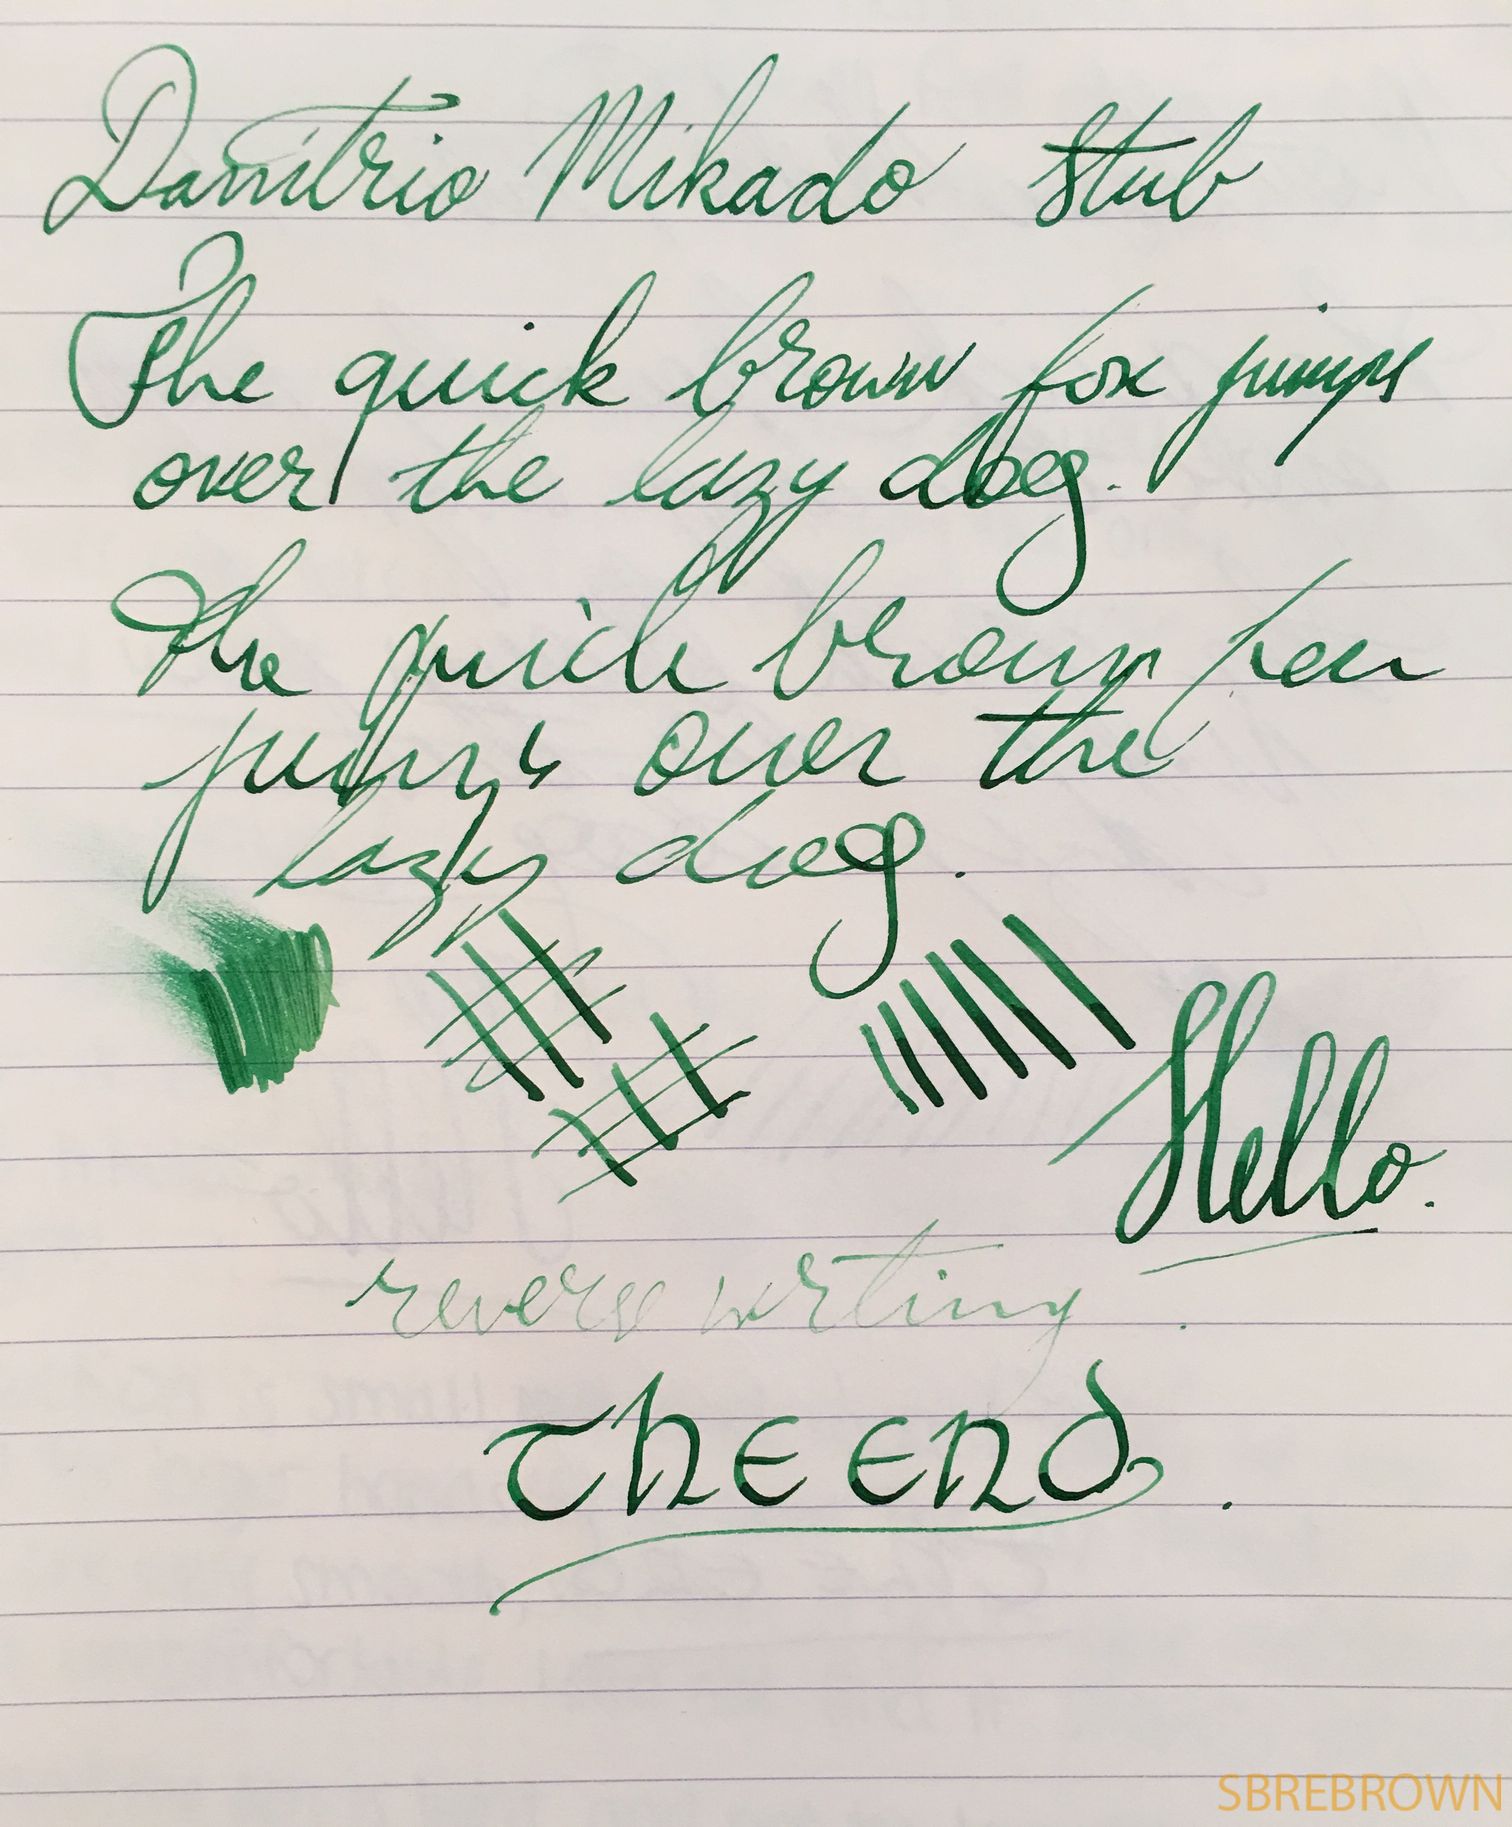 Danitrio Mikado stub
The quick brown fox jumps
over the lazy dog.
The quick brown fox
jumps over the
lazy dog.
Hello.
reverse writing.
The End.
SBREBROWN